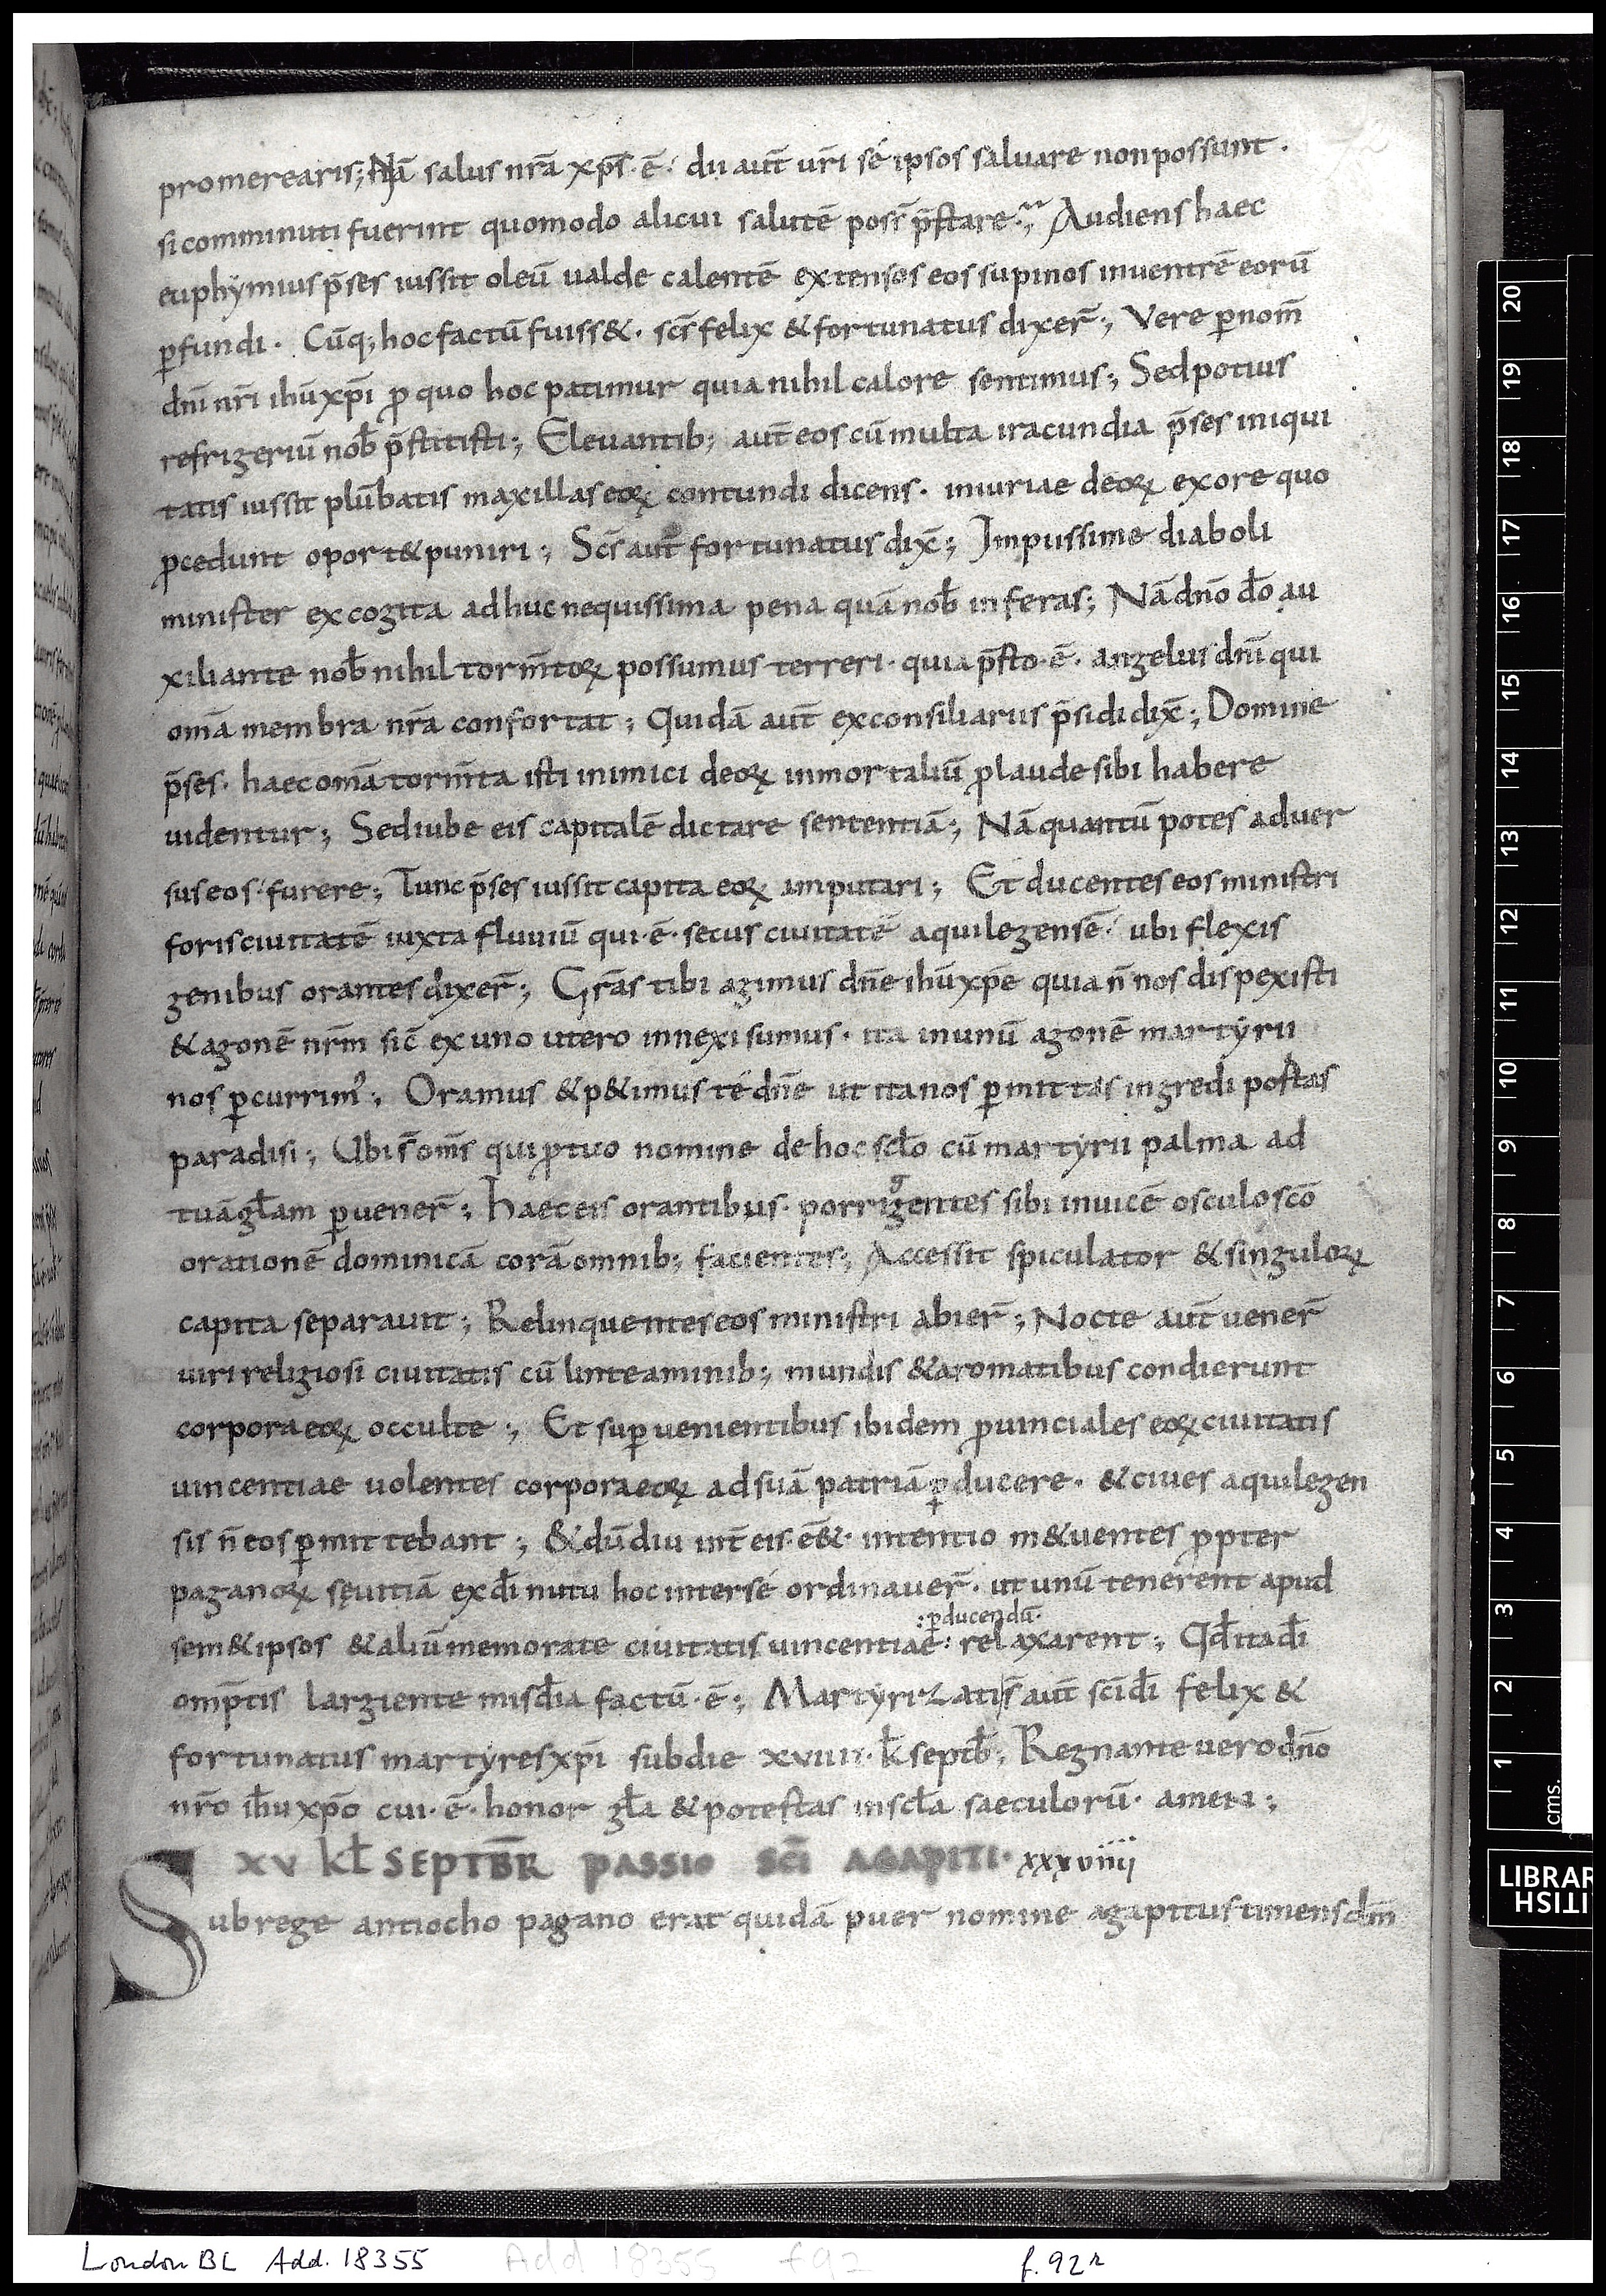 promerearis; Nā salus nrā xp̄s·ē· dii aut̄ ur̄i sé ipsos saluare non possunt.
si comminuti fuerint quomodo alicui salutē poss̄ p̄stare; Audiens haec
euphẏmius p̄ses iussit oleū ualde calentē extensos eos supinos inuentrē eorū
ꝑfundi. Cūq; hoc factū fuiss&. sc̄s felix & fortunatus dixer̄; Vere ꝑ nom̄
dn̄i nr̄i ihū xp̄i ꝓ quo hoc patimur quia nihil calore sentimus; Sed potius
refrigeriū nob̄ p̄stitisti; Eleuantib; aut̄ eos cū multa iracundia p̄ses iniqui
tatis iussit plūbatis maxillas eoꝝ contundi dicens. iniuriae deoꝝ ex ore quo
ꝓcedunt oport& puniri; Sc̄s aut̄ fortunatus dix̄; Impiissime diaboli
minister excogita adhuc nequissima pena quā nob̄ inferas; Nā dn̄o d̄o au
xiliante nob̄ nihil torm̄toꝝ possumus terreri. quia p̄sto·ē· angelus dn̄i qui
om̄a membra nr̄a confortat; Quidā aut̄ ex consiliariis p̄sidi dix̄; Domine
p̄ses. haec om̄a torm̄ta isti inimici deoꝝ inmortaliū ꝓ laude sibi habere
uidentur; Sed iube eis capitalē dictare sententiā; Nā quantū potes aduer
sus eos furere; Tunc p̄ses iussit capita eoꝝ amputari; Et ducentes eos ministri
foris ciuitatē iuxta fluuiū qui·ē· secus ciuitatē aquilegensē ubi flexis
genibus orantes dixer̄; Gr̄as tibi agimus dn̄e ihū xp̄e quia n̄ nos dispexisti
& agonē nr̄m sic̄ ex uno utero innexi sumus. ita in unū agonē martẏrii
nos ꝑcurrim᾽; Oramus & p&imus té dn̄e ut ita nos ꝑmittas ingredi postas
paradisi; Ubi s̄ om̄s qui ꝓ tuo nomine de hoc scl̄o cū martẏrii palma ad
tuā gl̄am ꝑuener̄; Haec eis orantibus. porrigentes sibi inuicē osculo sc̄o
orationē dominicā corā omnib; facientes; Accessit spiculator & singuloꝝ
capita separauit; Relinquentes eos ministri abier̄; Nocte aut̄ uener̄
uiri religiosi ciuitatis cū linteaminib; mundis & aromatibus condierunt
corpora eoꝝ occulte; Et suꝑuenientibus ibidem ꝓuinciales eoꝝ ciuitatis
uincentiae uolentes corpora eoꝝ ad suā patriā ꝑducere. & ciues aquilegen
sis n̄ eos ꝑmittebant; & dū diu int̄ eis ·ē&· intentio m&uentes ꝓpter
paganoꝝ sęuitiā ex dī nutu hoc inter sé ordinauer̄. ut unū tenerent apud
:ꝑducendū.
sem&ipsos & aliū memorate ciuitatis uincentiae: relaxarent; Qd̄ ita dī
omp̄tis largiente misd̄ia factū·ē; Martẏrizati s̄ aut̄ sc̄i dī felix &
fortunatus martẏres xp̄i sub die xviiii. k̄ septb̄; Regnante uero dn̄o
nr̄o ihū xp̄o cui·ē·honor gl̄a & potestas in scl̄a saeculorū. amen;
XV KL̄ SEPTBR̄ PASSIO SC̄I AGAPITI. xxxviiii
Sub rege antiocho pagano erat quidā puer nomine agapitus timens dm̄
LIBRAR
ITISH
cms. 1 2 3 4 5 6 7 8 9 10 11 12 13 14 15 16 17 18 19 20
London BL Add. 18355 Add 18355 f 92 f. 92r